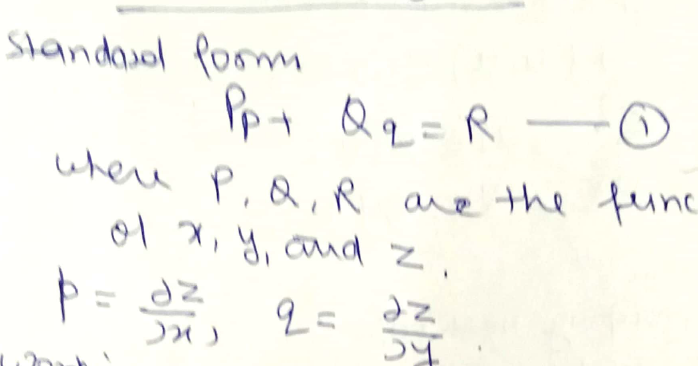 Standard form
Pp + Qq = R —— ①
where P, Q, R are the func
of x, y, and z.
p = ∂z/∂x, q = ∂z/∂y.